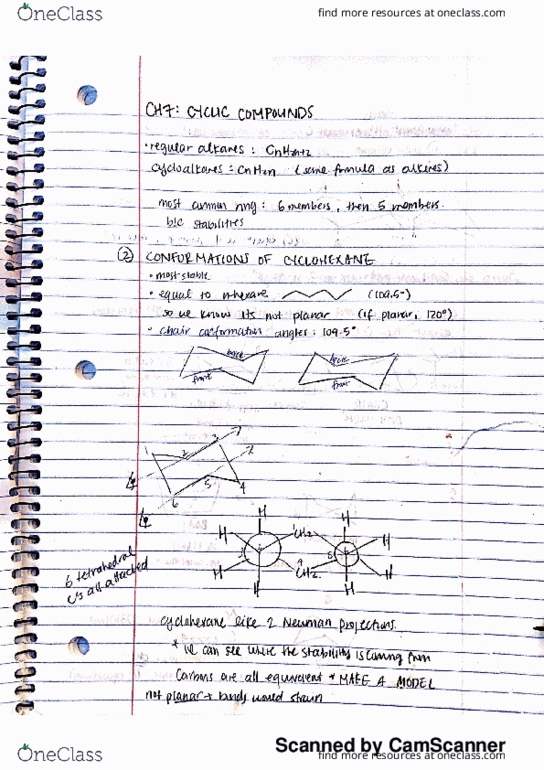 OneClass
find more resources at oneclass.com
CH7: CYCLIC COMPOUNDS
• regular alkanes : CnH2n+2
cycloalkanes = CnH2n (same formula as alkenes)
most common ring: 6 members, then 5 members.
b/c stabilities
② CONFORMATIONS OF CYCLOHEXANE
• most stable
• equal to n-hexane (109.5°)
so we know its not planar (if planar, 120°)
• chair conformation angles: 109.5°
back
front
back
1
2
3
4
5
6
H
H
H
H
CH2
CH2
H
H
H
H
6 tetrahedral
C's all attached
cyclohexane like 2 Newman projections.
* we can see where the stability is coming from
Carbons are all equivalent * MAKE A MODEL
not planar → bonds would strain
Scanned by CamScanner
OneClass
find more resources at oneclass.com